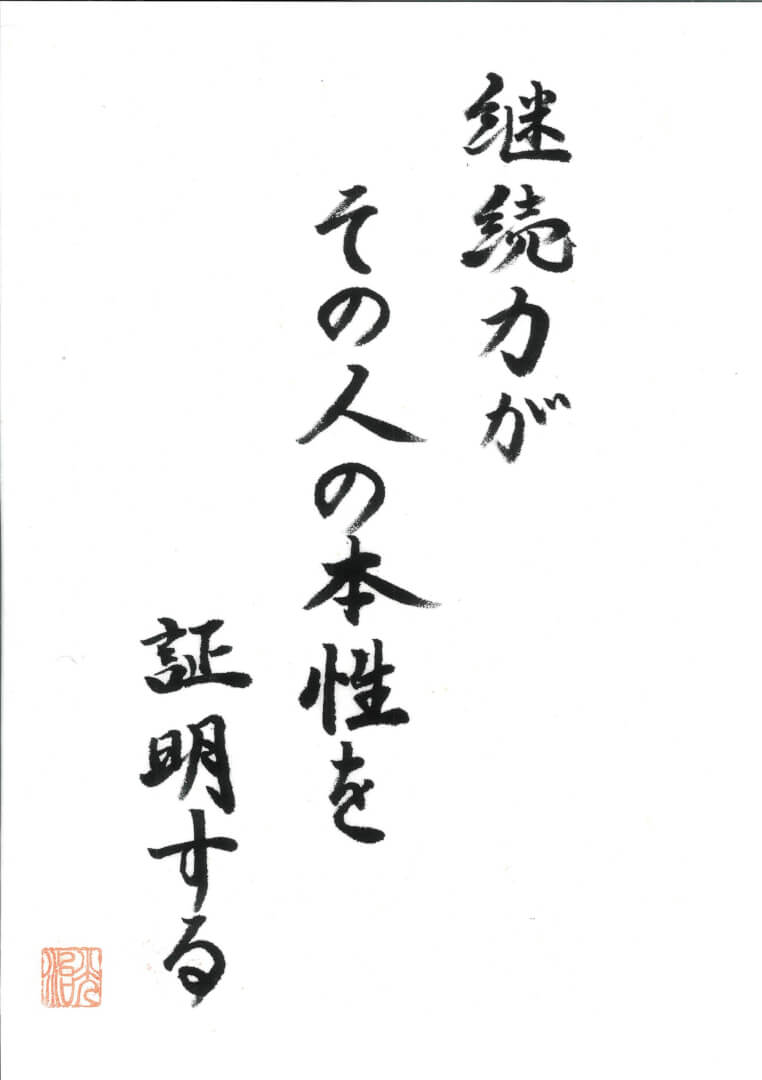 継続力が
その人の本性を
証明する